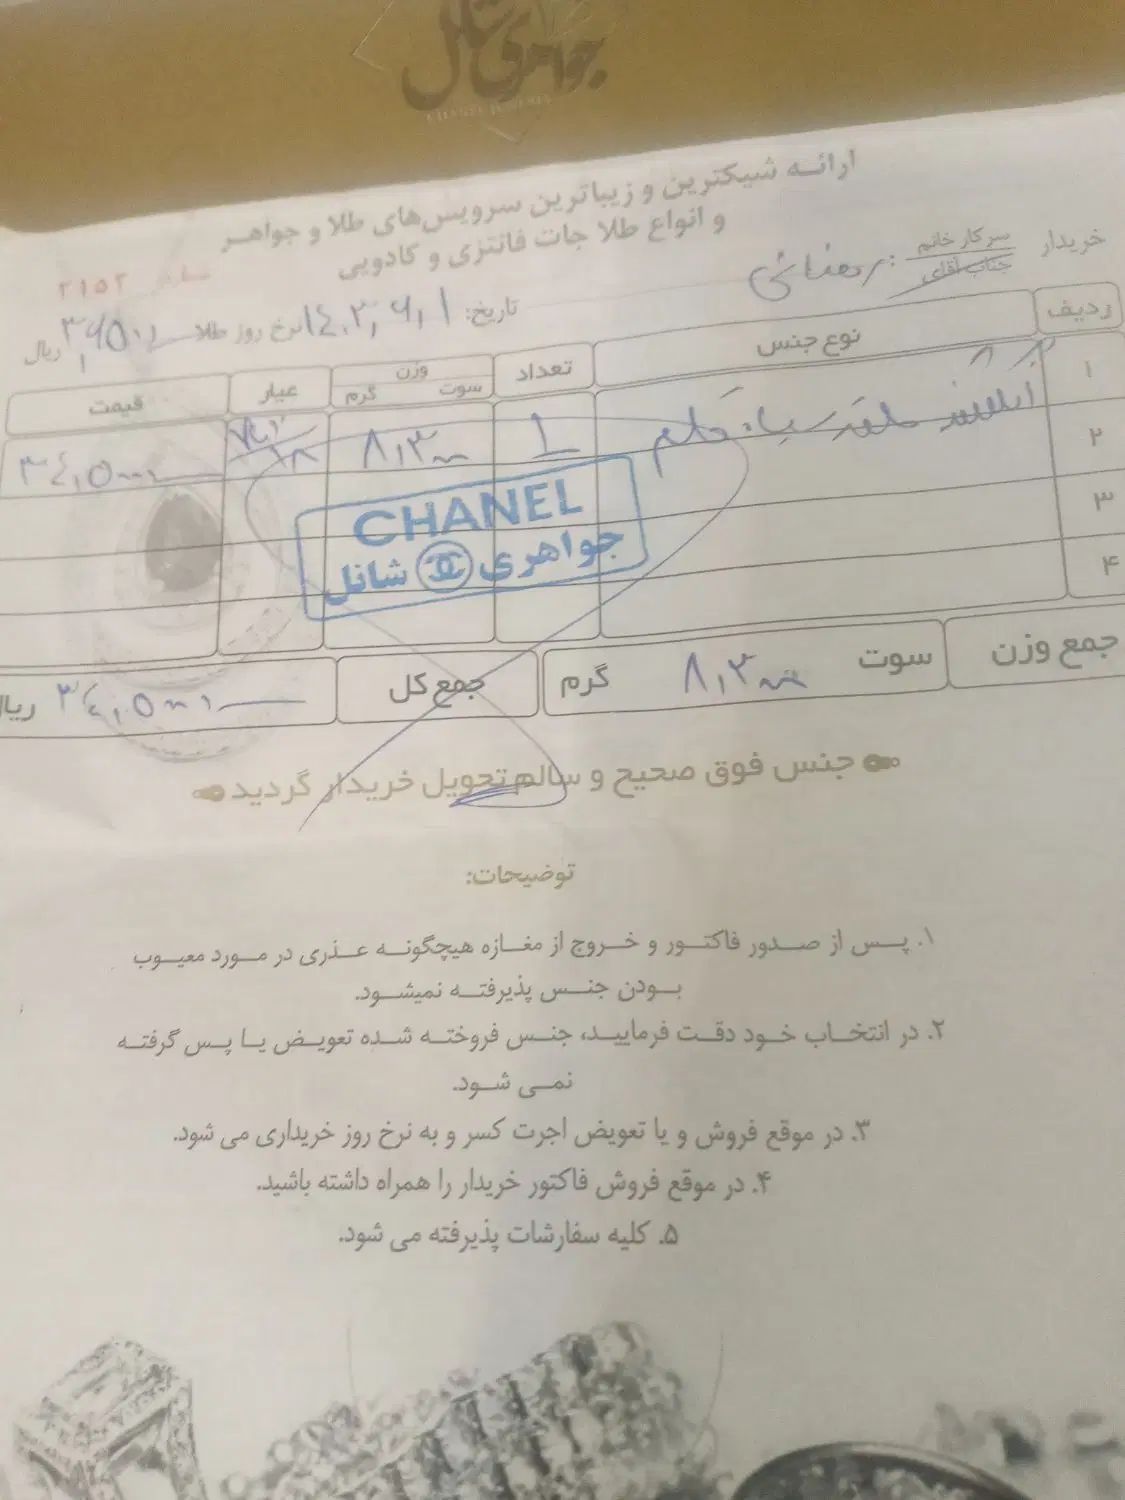 جواهری شانل
CHANEL JEWELRY
ارائه شیکترین و زیباترین سرویس‌های طلا و جواهر
و انواع طلا جات فانتزی و کادویی
۲۱۵۲
خریدار سرکار خانم جناب آقای : رمضانی
تاریخ: ۱۴۰۲٫۶٫۱ نرخ روز طلا ریال
ردیف نوع جنس تعداد وزن سوت گرم عیار قیمت
۱ ۱ ۸٫۳۰۰ ۳۴٫۵۰۰۰
۲
۳
۴
CHANEL
جواهری شانل
جمع وزن سوت ۸٫۳۰۰ گرم جمع کل ۳۴٫۵۰۰۰ ریال
جنس فوق صحیح و سالم تحویل خریدار گردید
توضیحات:
۱. پس از صدور فاکتور و خروج از مغازه هیچگونه عذری در مورد معیوب
بودن جنس پذیرفته نمیشود.
۲. در انتخاب خود دقت فرمایید، جنس فروخته شده تعویض یا پس گرفته
نمی شود.
۳. در موقع فروش و یا تعویض اجرت کسر و به نرخ روز خریداری می شود.
۴. در موقع فروش فاکتور خریدار را همراه داشته باشید.
۵. کلیه سفارشات پذیرفته می شود.